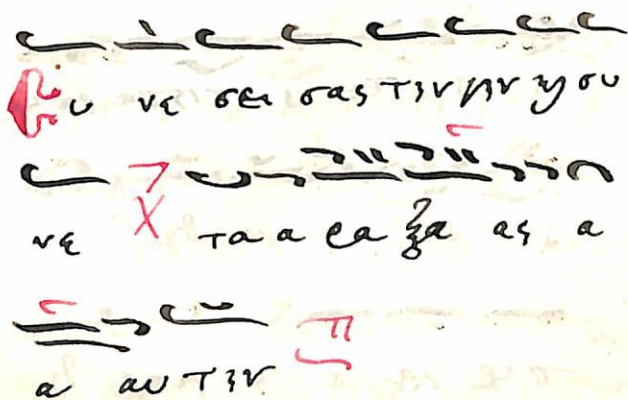 Συ νε σει σας την γην ϗ συ
νε τα α ρα ξα ας α
α αυ την